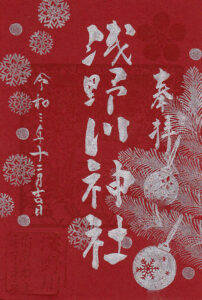 奉拝
浅野川神社
令和三年十二月吉日